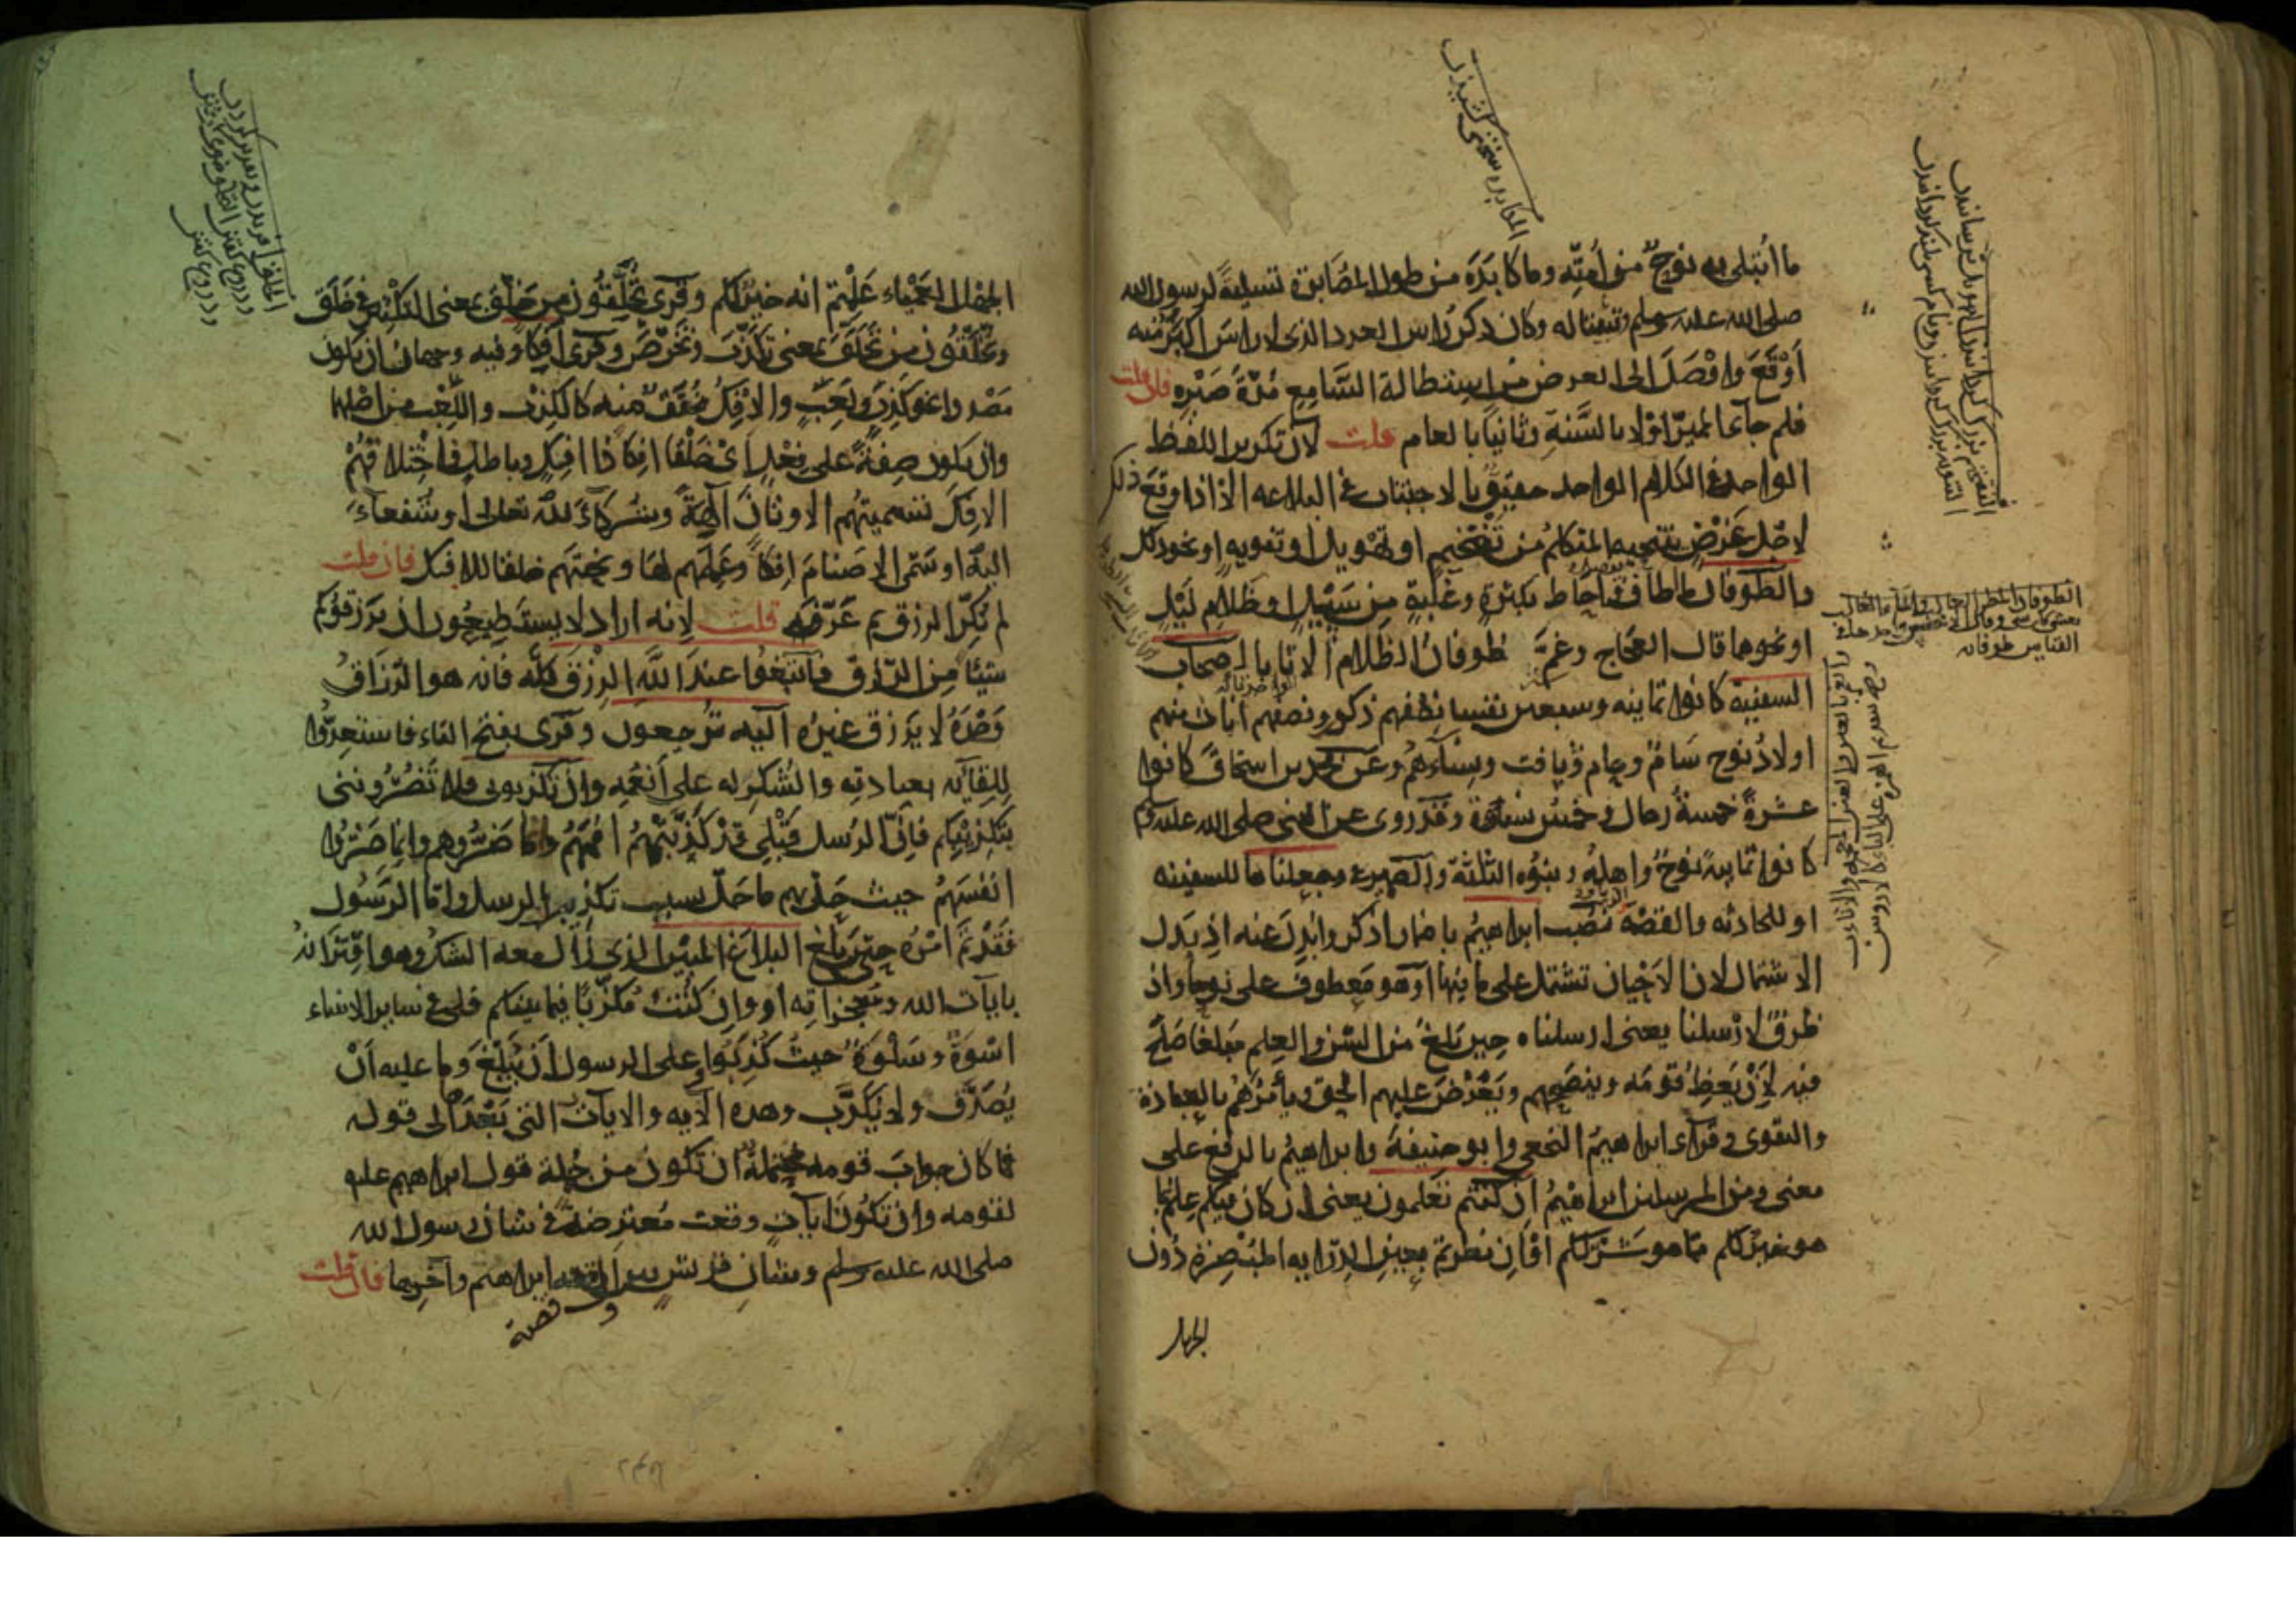 ما ابتلى به نوح من أمته وما كابده من طول المصابرة تسلية لرسول الله
صلى الله عليه وسلم وتثبيتا له وكان ذكر راس العدد الذى لا راس اكبر منه
أوقع وافضل الى الغرض من استطالة السامع مدة صبره فان قلت
فلم جاء المميز اولا بالسنة وثانيا بالعام قلت لان تكرير اللفظ
الواحد فى الكلام الواحد حقيق بالاجتناب فى البلاغه الا اذا وقع ذلك
لاجل غرض ينتحيه المتكلم من تفخيم او تهويل او تنويه او نحو ذلك
والطوفان ما اطاف واحاط بكثرة وغلبة من سيل او ظلام ليل
او نحوهما قال العجاج وغم طوفان الظلام الاثابا اصحاب
السفينة كانوا ثمانية وسبعين نفسا نصفهم ذكور ونصفهم اناث منهم
اولاد نوح سام وحام ويافث ونساؤهم وعن محمد بن اسحاق كانوا
عشرة خمسة رجال وخمس نسوة وقد روى عن النبى صلى الله عليه وسلم
كانوا ثمانية نوح واهله وبنوه الثلثة والضمير فى وجعلناها للسفينه
او للحادثه والقصة نصب ابراهيم باضمار اذكر وابدل عنه اذ بدل
الاشتمال لان الاحيان تشتمل على ما فيها او هو معطوف على نوحا واذ
ظرف لارسلنا يعنى ارسلناه حين بلغ من السن والعلم مبلغا صلح
فيه لان يعظ قومه وينصحهم ويعرض عليهم الحق ويأمرهم بالعبادة
والتقوى وقرأ ابراهيم النخعى وابو حنيفة وابراهيم بالرفع على
معنى ومن المرسلين ابراهيم ان كنتم تعلمون يعنى ان كان فيكم علم بما
هو خير لكم مما هو شر لكم او ان نظرتم بعين الدراية المبصرة دون
الجهل
الجهل العمياء علمتم انه خير لكم وقرئ تخلقون من خلق بمعنى التكثير فى خلق
وتخلقون من تخلق بمعنى تكذب وتخرص وقرئ افكا وفيه وجهان ان يكون
مصدرا نحو كذب ولعب والافك مخفف منه كالكذب واللعب من اصلهما
وان يكون صفة على فعل اى خلقا افكا ذا افك وباطل فاختلاقهم
الافك تسميتهم الاوثان آلهة وشركاء لله تعالى او شفعاء
اليه او سمى الاصنام افكا وعملهم لها ونحتهم خلقا للافك فان قلت
لم نكر الرزق ثم عرفه قلت لانه اراد لا يستطيعون ان يرزقوكم
شيئا من الرزق فابتغوا عند الله الرزق كله فانه هو الرزاق
وحده لا يرزق غيره اليه ترجعون وقرئ بفتح التاء فاستعدوا
للقائه بعبادته والشكر له على انعمه وان تكذبونى فلا تضروننى
بتكذيبكم فان الرسل قبلى قد كذبتهم اممهم وما ضروهم وانما ضروا
انفسهم حيث حل بهم ما حل بسبب تكذيب الرسل واما الرسول
فقد تم امره حين بلغ البلاغ المبين الذى زال معه الشك وهو اقترانه
بايات الله ومعجزاته او وان كنت مكذبا فيما بينكم فلى فى سائر الانبياء
اسوة وسلوة حيث كذبوا وعلى الرسول ان يبلغ وما عليه ان
يصدق ولا يكذب وهذه الآيه والايات التى بعدها الى قوله
فما كان جواب قومه محتملة ان تكون من جملة قول ابراهيم عليه
لقومه وان تكون ايات وقعت معترضة فى شان رسول الله
صلى الله عليه وسلم وشان قريش بين اول قصة ابراهيم وآخرها فان قلت